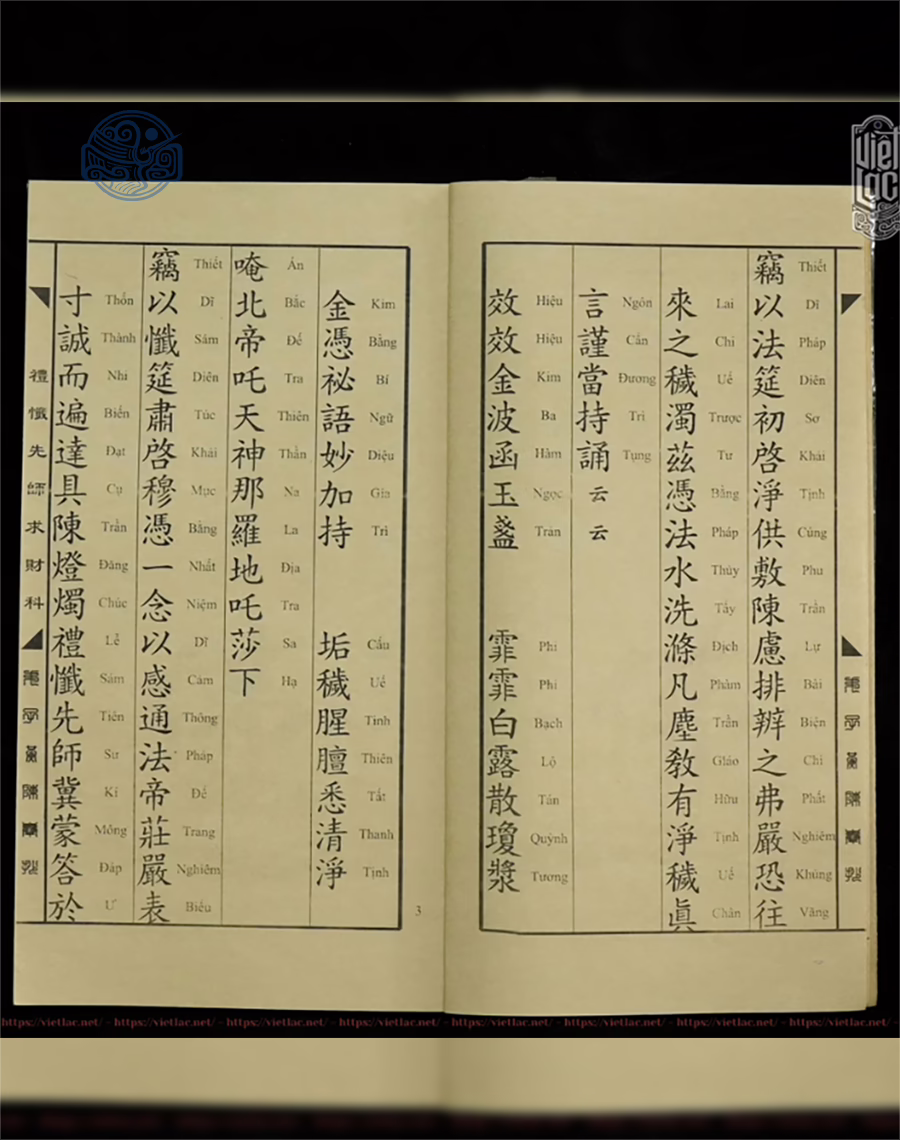 Việt Lạc
竊以法筵初啓淨供敷陳慮排辨之弗嚴恐往
Thiết Dĩ Pháp Diên Sơ Khải Tịnh Cúng Phu Trần Lự Bài Biện Chi Phất Nghiêm Khủng Vãng
來之穢濁茲憑法水洗滌凡塵教有淨穢眞
Lai Chi Uế Trược Tư Bằng Pháp Thủy Tẩy Địch Phàm Trần Giáo Hữu Tịnh Uế Chân
言謹當持誦云云
Ngôn Cẩn Đương Trì Tụng
效效金波函玉盞 霏霏白露散瓊漿
Hiệu Hiệu Kim Ba Hàm Ngọc Trản Phi Phi Bạch Lộ Tán Quỳnh Tương
金憑祕語妙加持 垢穢腥膻悉清淨
Kim Bằng Bí Ngữ Diệu Gia Trì Cấu Uế Tinh Thiên Tất Thanh Tịnh
唵北帝吒天神那羅地吒莎下
Án Bắc Đế Tra Thiên Thần Na La Địa Tra Sa Hạ
竊以懺筵肅啓穆憑一念以感通法帝莊嚴表
Thiết Dĩ Sám Diên Túc Khải Mục Bằng Nhất Niệm Dĩ Cảm Thông Pháp Đế Trang Nghiêm Biểu
寸誠而遍達具陳燈燭禮懺先師冀蒙答於
Thốn Thành Nhi Biến Đạt Cụ Trần Đăng Chúc Lễ Sám Tiên Sư Kí Mông Đáp Ư
禮懺先師求財科
3
https://vietlac.net/ - https://vietlac.net/ - https://vietlac.net/ - https://vietlac.net/ - https://vietlac.net/ - https://vietlac.net/ - https://vietlac.net/ - https://vietlac.net/ -